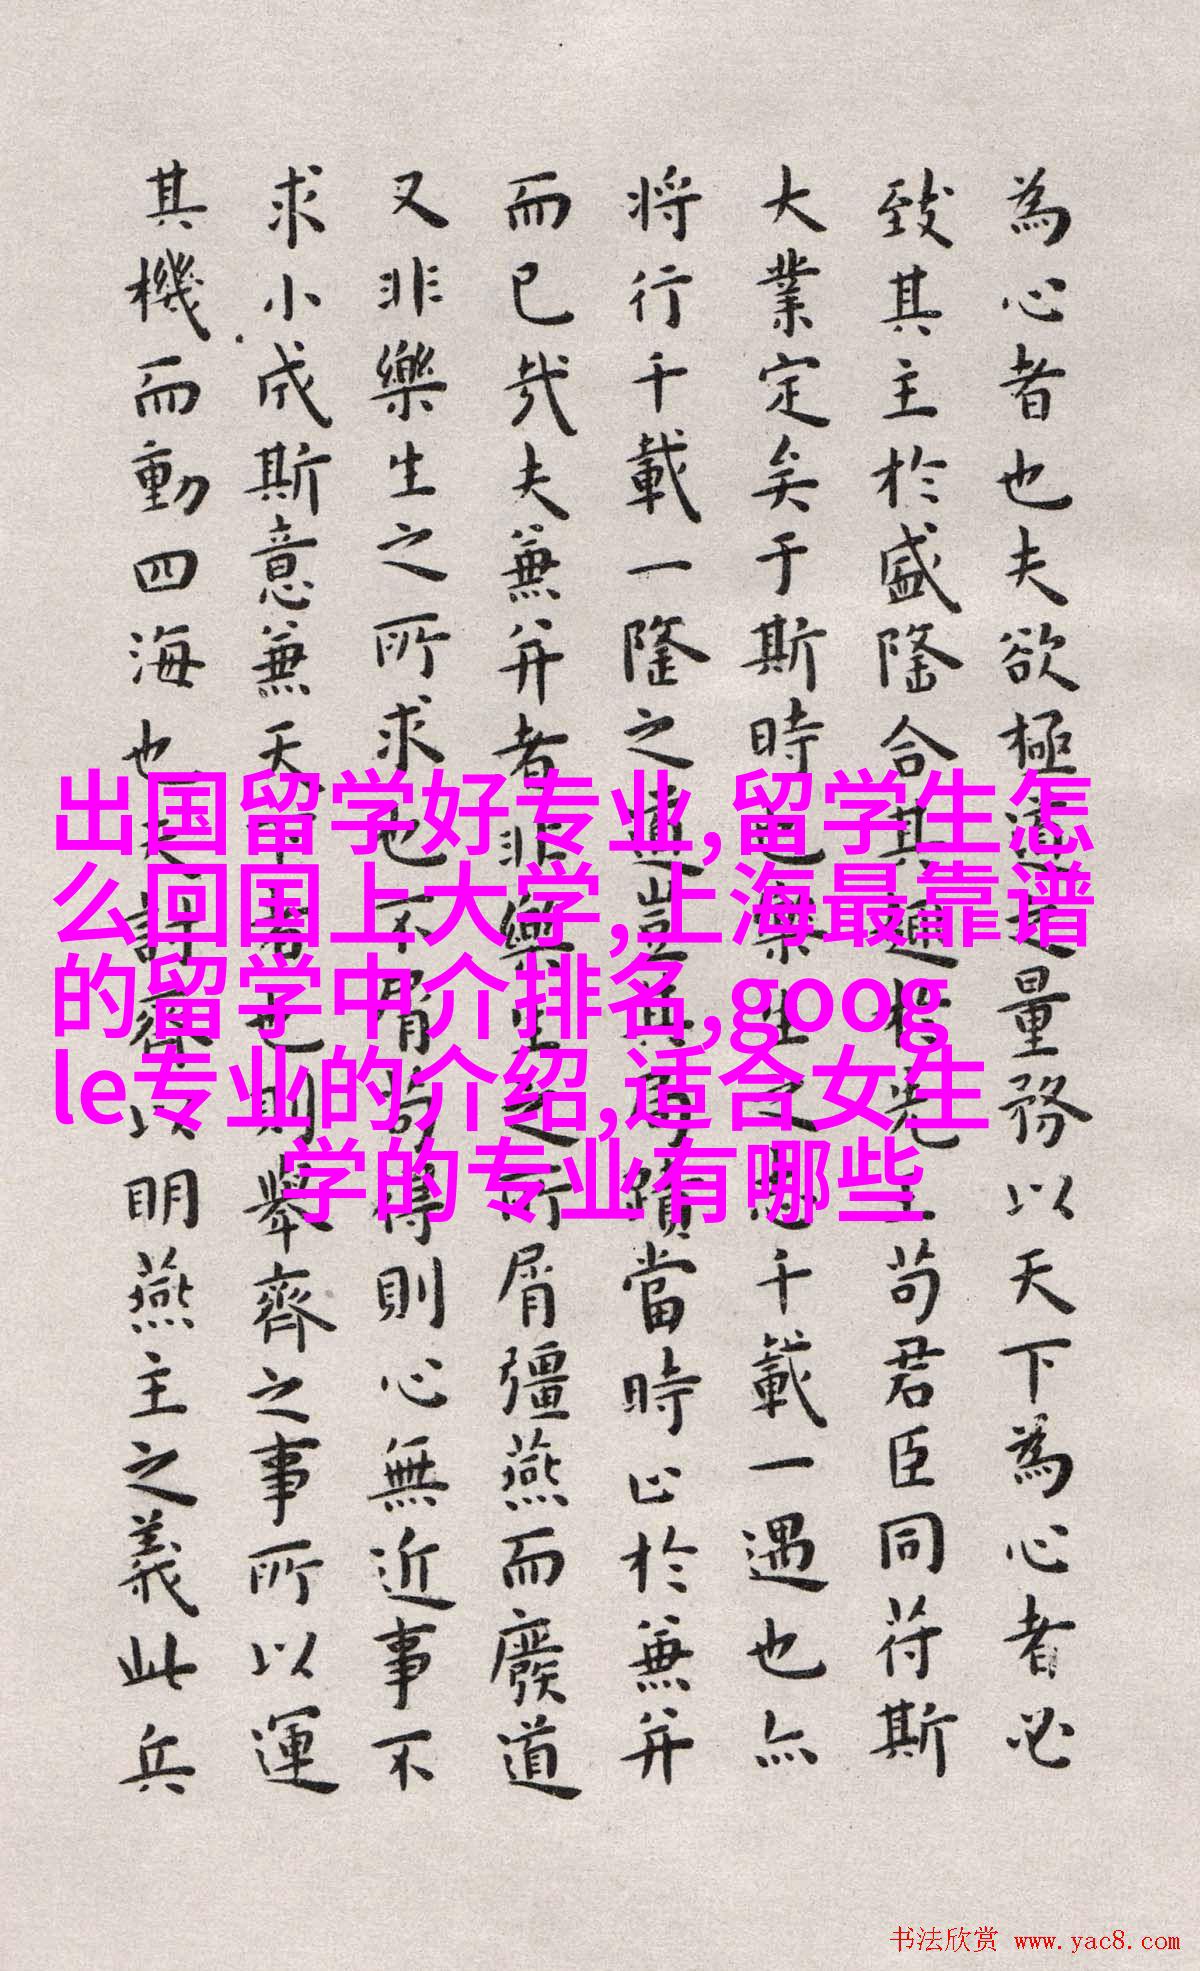 為心者也夫欲極道之量務以天下為心者必
致其主於盛隆合其趣於先王苟君臣同符斯
大業定矣于斯時也樂生之志千載一遇也亦
將行千載一隆之道豈其局蹟當時止於兼并
而已哉夫兼并者非樂生之所屑彊燕而廢道
又非樂生之所求也不屑苟得則心無近事不
求小成斯意兼天下者也則舉齊之事所以運
其機而動四海也夫討齊以明燕主之義此兵
出国留学好专业,留学生怎
么回国上大学,上海最靠谱
的留学中介排名,goog
le专业的介绍,适合女生
学的专业有哪些
书法欣赏 www.yac8.com